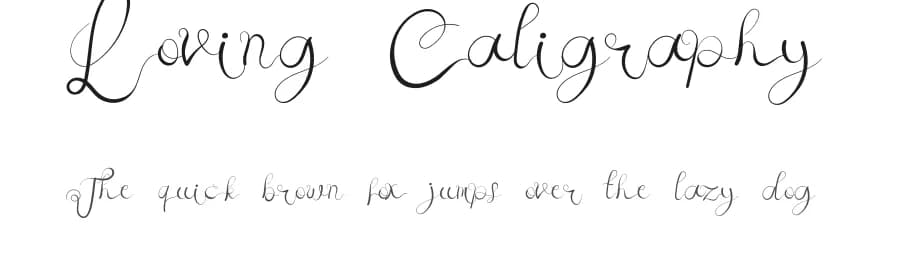 Loving Caligraphy
The quick brown fox jumps over the lazy dog